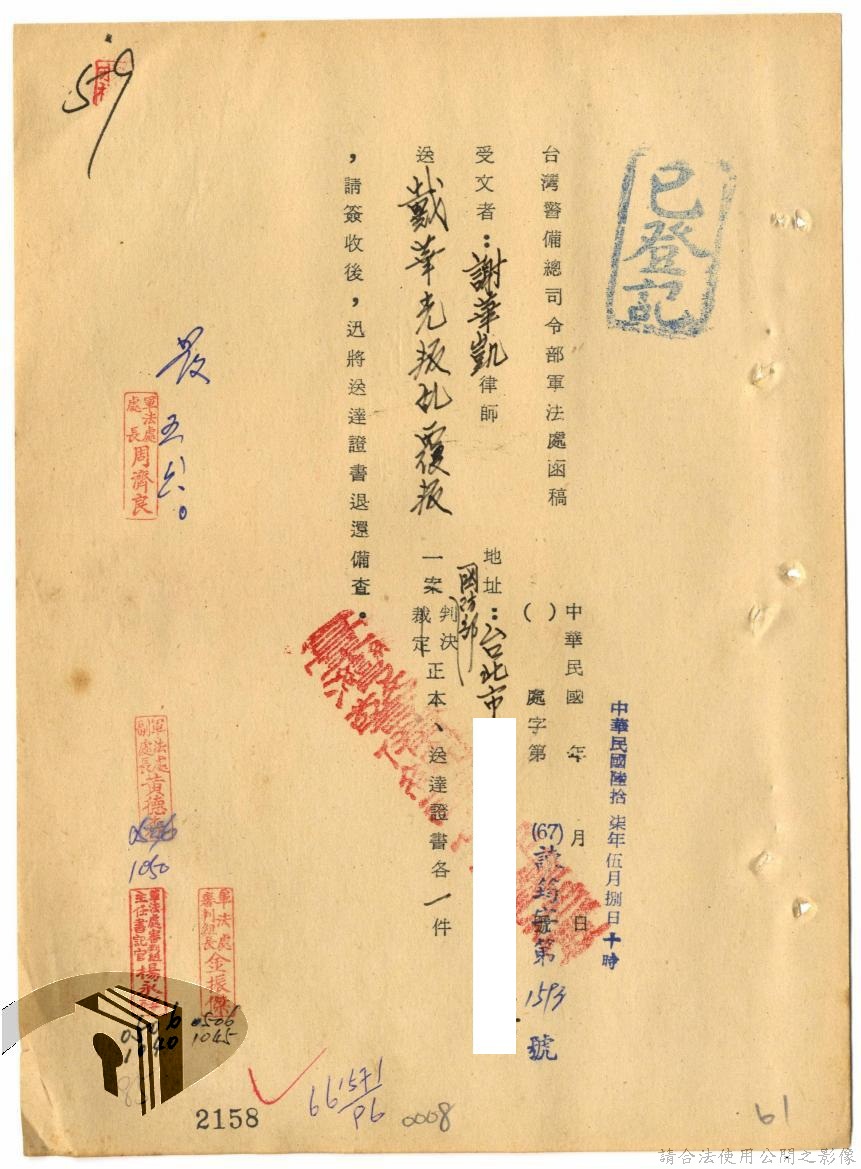 已登記
中華民國陸拾柒年伍月捌日十時
台灣警備總司令部軍法處函稿
中華民國 年 月 日
( ) 處字第 號
(67) 字第1593號
受文者：謝華凱律師
地址：台北市
國防部
送戴華光叛乱覆叛一案判決裁定正本、送達證書各一件
，請簽收後，迅將送達證書退還備查。
發
五六。
軍法處處長周濟良
軍法處副處長黃德
1050
軍法處審判組長金振傑
0506
1045
軍法處審判組主任書記官楊永
0506
1040
579
661571/96
2158
0008
61
請合法使用公開之影像